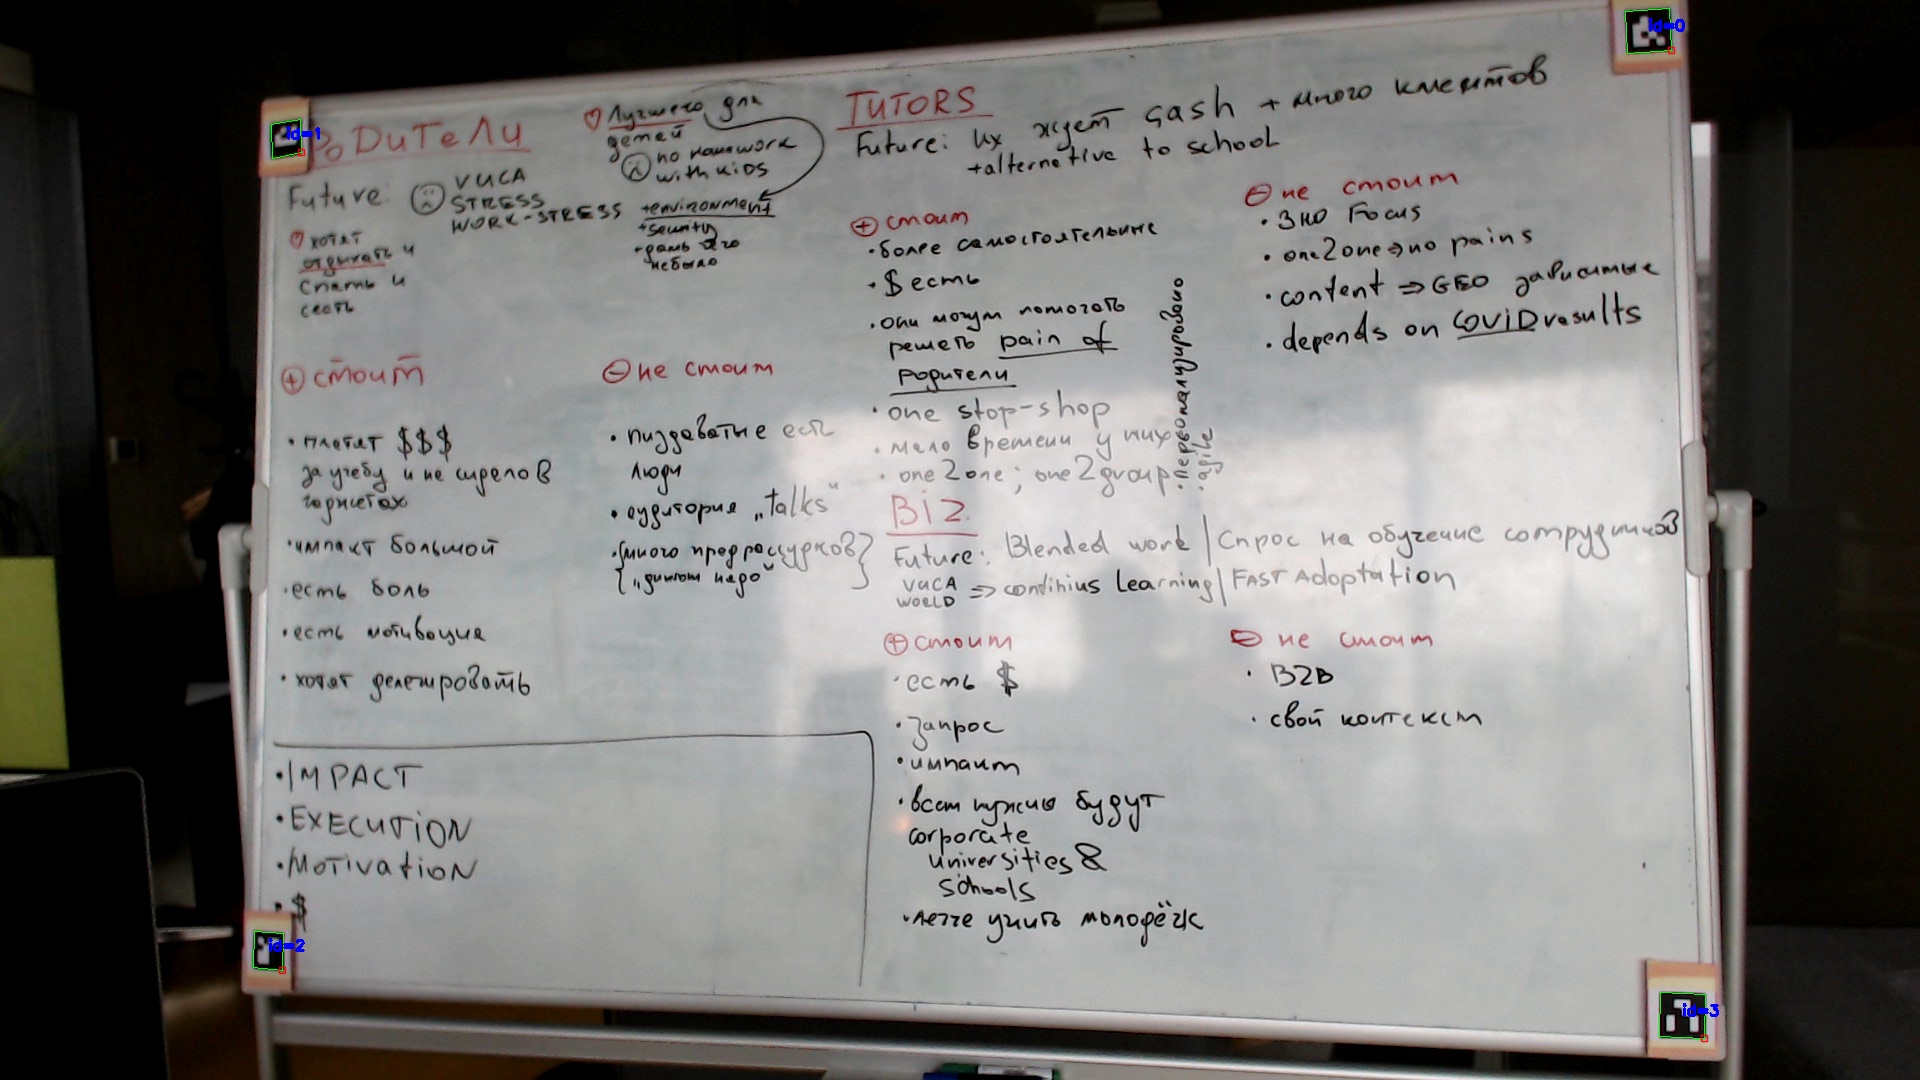 РОДИТЕЛИ
Future:
VUCA
STRESS
WORK-STRESS
хотят
отдыхать и
спать и
сесть
Лучшего для
детей
no homework
with kids
+environment
+security
не было
⊕ стоит
• платят $$$
за учебу и не сидел в
• импакт большой
• есть боль
• есть мотивация
• хотят делегировать
⊖ не стоит
• пиздаватые есть
люди
• аудитория „talks"
• {много предрассудков}
{ „диплом надо"
• IMPACT
• EXECUTION
• MOTIVATION
• $
TUTORS
Future: их ждет cash + много клиентов
+alternative to school
⊕ стоит
• более самостоятельные
• $ есть
• они могут помогать
решать pain of
родители
• one stop-shop
• мало времени у них
• one2one; one2group
• персонализировано
• agile
⊖ не стоит
• ЗНО Focus
• one2one ⇒ no pains
• content ⇒ GEO зависимые
• depends on COVID results
BIZ.
Future: Blended work | Спрос на обучение сотрудников
VUCA
WORLD ⇒ continius Learning | FAST Adoptation
⊕ стоит
• есть $
• запрос
• импакт
• всем нужны будут
corporate
universities &
schools
• легче учить молодёжь
⊖ не стоит
• B2B
• свой контекст